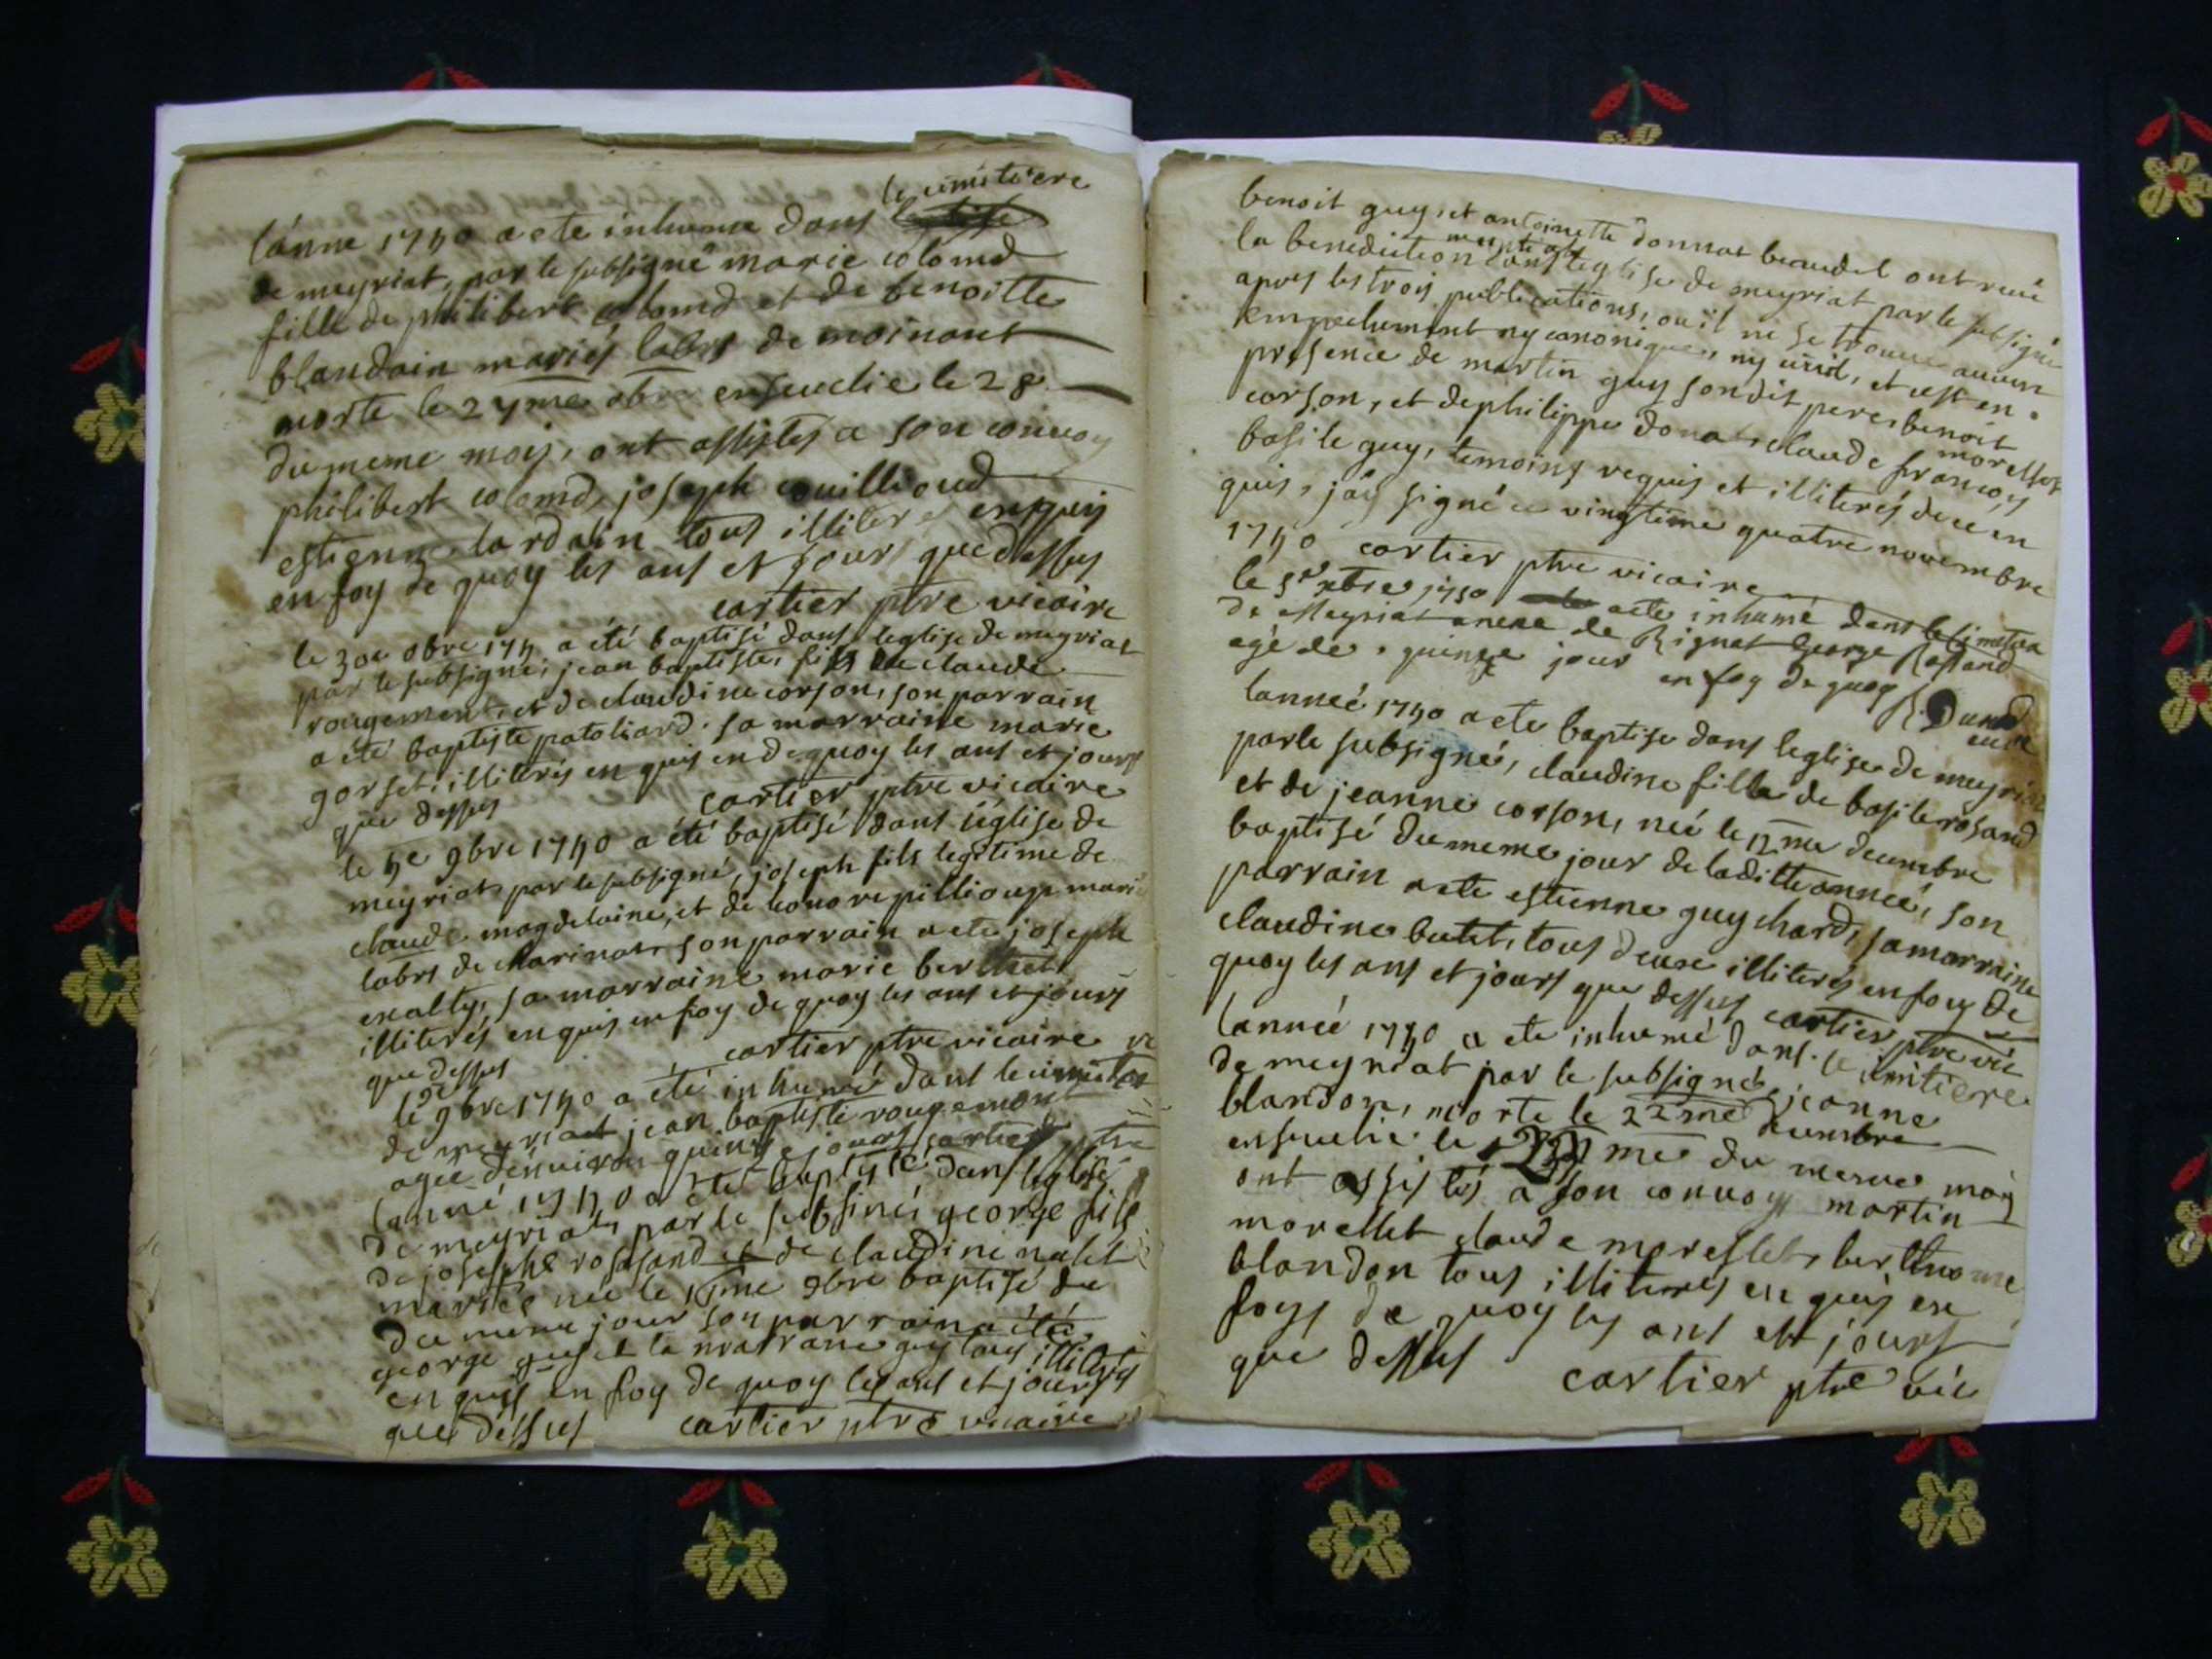 le cimitiere
lánne 1750 a ete inhume dans
de meyriat, par le subsigné marie colomd
fille de philibert colomd et de benoitte
blandain mariés labrs de moinans
morte le 27me obre ensevelie le 28
du meme mois, ont assistes a son convoy
philibert colomd, joseph couillioud
estienne lardain tous illiteres enquis
en foy de quoy les ans et jours que dessus
cartier ptre vicaire
le 30e obre 175 a été baptisé dans leglise de meyriat
par le subsigné, jean baptiste, fils de claude
rougement, et de claudine corson, son parrain
a été baptiste patoliard. sa marraine marie
gorset, illiterés en quis en de quoy les ans et jours
que dessus
cartier ptre vicaire
le 5e 9bre 1750 a été baptisé dans léglise de
meyriat par le subsigné, joseph fils legitime de
claude magdelaine, et de honore pillioup marié
labrs de charinat, son parrain a ete joseph
exalty, sa marraine marie berthet
illiterés enquis en foy de quoy les ans et jours
que dessus
cartier ptre vicaire
le 9bre 1750 a été inhumé dans le cimitiere
de meyriat jean baptiste rougemont
agée dénviron quinze jours cartier ptre
lanné 1750 a été baptisé dans leglise
de meyriat, par le subsiné, george fils
de josephe rossand et de claudine nallet
mariés née le 9bre baptisé de
du meme jour son parrain a été
george guy et la marrane guy tous illiterés
en quis en foy de quoy les ans et jours
que dessus cartier ptre vicaire
benoit guy, et antoinette donnat beaudet ont recu
nuptiale
la benediction dans leglise de meyriat par le subsigné
apres les trois publications, ou il ne se trouve aucun
empechement ny canonique, ny civil, et cest en
presence de martin guy son dit pere, benoit
morellet
corson, et de philippe donat, claude francoys
basile guy, temoins requis et illiterés de ce en
quis, jáy signé ce vingtieme quatre novembre
1750 cartier ptre vicaire
le 5e xbre 1750 a ete inhumé dans le Cimetiere
de Meyriat anexe de Rignat George Rossand
agé de quinze jour en foy de quoy Dunand
curé
lanneé 1750 a ete baptise dans leglise de meyriat
par le subsigné, claudine fille de basile rosand
et de jeanne corson, neé le 12me decembre
baptisé du meme jour de laditte anneé, son
parrain a ete estienne guy chard, sa marraine
claudine butet, tous deux illiterés en foy de
quoy les ans et jours que dessus cartier ptre vic
lanneé 1750 a ete inhumé dans le cimitiere
de meyriat par le subsigné, jeanne
blandon, morte le 22me decembre
ensevelie le 23me du meme mois
ont assistés a son convoy martin
morellet claude morellet, berthome
blandon tous illiterés en quis en
foys de quoy les ans et jours
que dessus cartier ptre vic